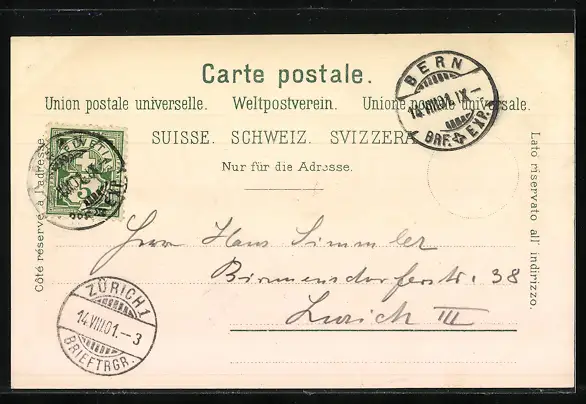 Carte postale.
Union postale universelle. Weltpostverein. Unione postale universale.
SUISSE. SCHWEIZ. SVIZZERA.
Nur für die Adresse.
Côté réservé à l'adresse.
Lato riservato all' indirizzo.
BERN
14.VIII.01. IX–
BRF. EXP.
Herr Hans Simmler
Birmensdorferstr. 38
Zürich III
ZÜRICH 1
14.VIII.01.–3
BRIEFTRGR.